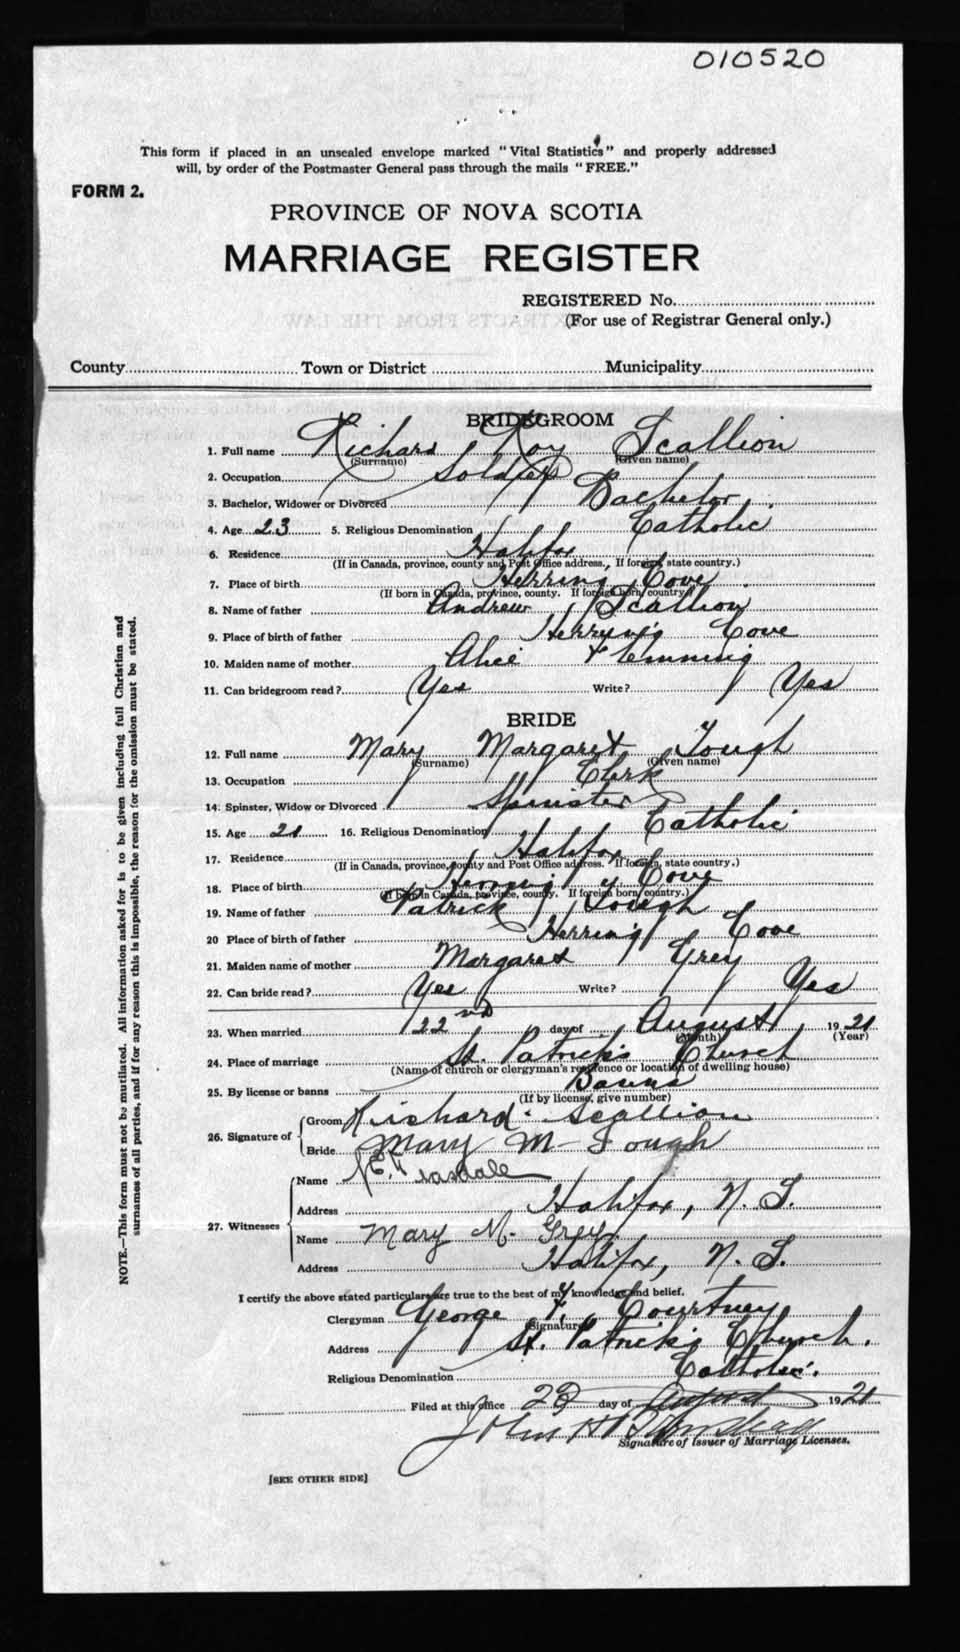 010520
This form if placed in an unsealed envelope marked "Vital Statistics" and properly addressed
will, by order of the Postmaster General pass through the mails "FREE."
FORM 2.
PROVINCE OF NOVA SCOTIA
MARRIAGE REGISTER
REGISTERED No.
(For use of Registrar General only.)
County Town or District Municipality
BRIDEGROOM
1. Full name Richard Roy Scallion
(Surname) (Given name)
2. Occupation Soldier
3. Bachelor, Widower or Divorced Bachelor
4. Age 23 5. Religious Denomination Catholic
6. Residence Halifax
(If in Canada, province, county and Post Office address. If foreign, state country.)
7. Place of birth Herring Cove
(If born in Canada, province, county. If foreign born, country.)
8. Name of father Andrew Scallion
9. Place of birth of father Herrying Cove
10. Maiden name of mother Alice Flemming
11. Can bridegroom read? Yes Write? Yes
BRIDE
12. Full name Mary Margaret Tough
(Surname) (Given name)
13. Occupation Clerk
14. Spinster, Widow or Divorced Spinster
15. Age 21 16. Religious Denomination Catholic
17. Residence Halifax
(If in Canada, province, county and Post Office address. If foreign, state country.)
18. Place of birth Herring Cove
(If born in Canada, province, county. If foreign born, country.)
19. Name of father Patrick Tough
20 Place of birth of father Herring Cove
21. Maiden name of mother Margaret Grey
22. Can bride read? Yes Write? Yes
23. When married 22nd day of August 1921
(Month) (Year)
24. Place of marriage St. Patrick's Church
(Name of church or clergyman's residence or location of dwelling house)
25. By license or banns Banns
(If by license, give number)
26. Signature of
Groom Richard Scallion
Bride Mary M Tough
27. Witnesses
Name
Address Halifax, N.S.
Name Mary M. Grey
Address Halifax, N.S.
I certify the above stated particulars are true to the best of my knowledge and belief.
Clergyman George Courtney
(Signature)
Address St. Patrick's Church.
Religious Denomination Catholic.
Filed at this office 22 day of August 1921
John H
Signature of Issuer of Marriage Licenses.
[SEE OTHER SIDE]
NOTE.—This form must not be mutilated. All information asked for is to be given including full Christian and
surnames of all parties, and if for any reason this is impossible, the reason for the omission must be stated.